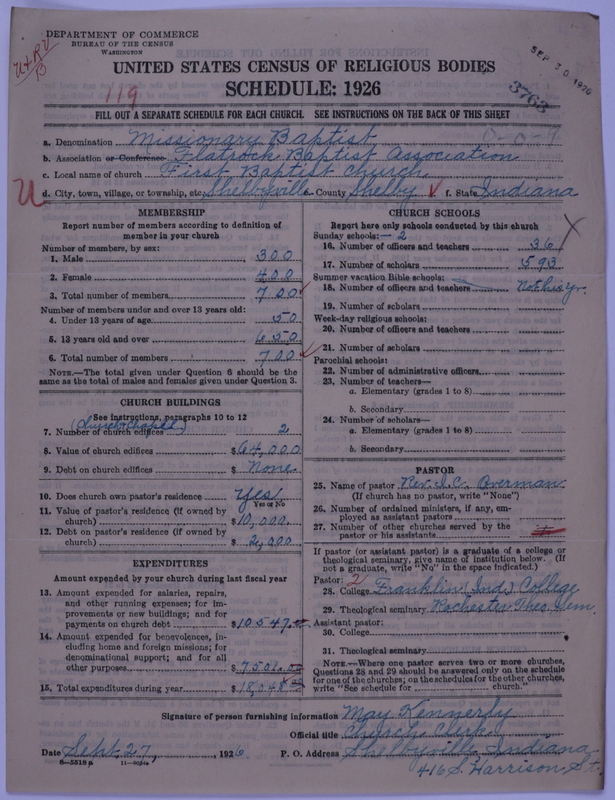 DEPARTMENT OF COMMERCE
BUREAU OF THE CENSUS
WASHINGTON
SEP 30 1926
3763
UNITED STATES CENSUS OF RELIGIOUS BODIES
SCHEDULE: 1926
119
FILL OUT A SEPARATE SCHEDULE FOR EACH CHURCH. SEE INSTRUCTIONS ON THE BACK OF THIS SHEET
a. Denomination Missionary Baptist
b. Association or Conference Flatrock Baptist Association
c. Local name of church First Baptist Church
d. City, town, village, or township, etc. Shelbyville e. County Shelby f. State Indiana
MEMBERSHIP
Report number of members according to definition of
member in your church
Number of members, by sex:
1. Male 300
2. Female 400
3. Total number of members 700
Number of members under and over 13 years old:
4. Under 13 years of age 50
5. 13 years old and over 650
6. Total number of members 700
NOTE.—The total given under Question 6 should be the
same as the total of males and females given under Question 3.
CHURCH BUILDINGS
See instructions, paragraphs 10 to 12
(Church & Chapel)
7. Number of church edifices 2
8. Value of church edifices $64,000
9. Debt on church edifices $ None
10. Does church own pastor's residence Yes
Yes or No
11. Value of pastor's residence (if owned by
church) $10,000
12. Debt on pastor's residence (if owned by
church) $2,000
EXPENDITURES
Amount expended by your church during last fiscal year
13. Amount expended for salaries, repairs,
and other running expenses; for im-
provements or new buildings; and for
payments on church debt $10547.00
14. Amount expended for benevolences, in-
cluding home and foreign missions; for
denominational support; and for all
other purposes $7501.00
15. Total expenditures during year $18,048.00
CHURCH SCHOOLS
Report here only schools conducted by this church
Sunday schools:— 2
16. Number of officers and teachers 36
17. Number of scholars 593
Summer vacation Bible schools:
18. Number of officers and teachers Not this yr.
19. Number of scholars
Week-day religious schools:
20. Number of officers and teachers
21. Number of scholars
Parochial schools:
22. Number of administrative officers
23. Number of teachers—
a. Elementary (grades 1 to 8)
b. Secondary
24. Number of scholars—
a. Elementary (grades 1 to 8)
b. Secondary
PASTOR
25. Name of pastor Rev. I. C. Overman
(If church has no pastor, write "None")
26. Number of ordained ministers, if any, em-
ployed as assistant pastors
27. Number of other churches served by the
pastor or his assistants
If pastor (or assistant pastor) is a graduate of a college or
theological seminary, give name of institution below. (If
not a graduate, write "No" in the space indicated.)
Pastor: 2
28. College Franklin (Ind.) College
29. Theological seminary Rochester Theo. Sem.
Assistant pastor:
30. College
31. Theological seminary
NOTE.—Where one pastor serves two or more churches,
Questions 28 and 29 should be answered only on the schedule
for one of the churches; on the schedules for the other churches,
write "See schedule for church."
Signature of person furnishing information May Kennerly
Official title Church Clerk
Date Sept. 27, 1926 P. O. Address Shelbyville, Indiana
416 S. Harrison St.